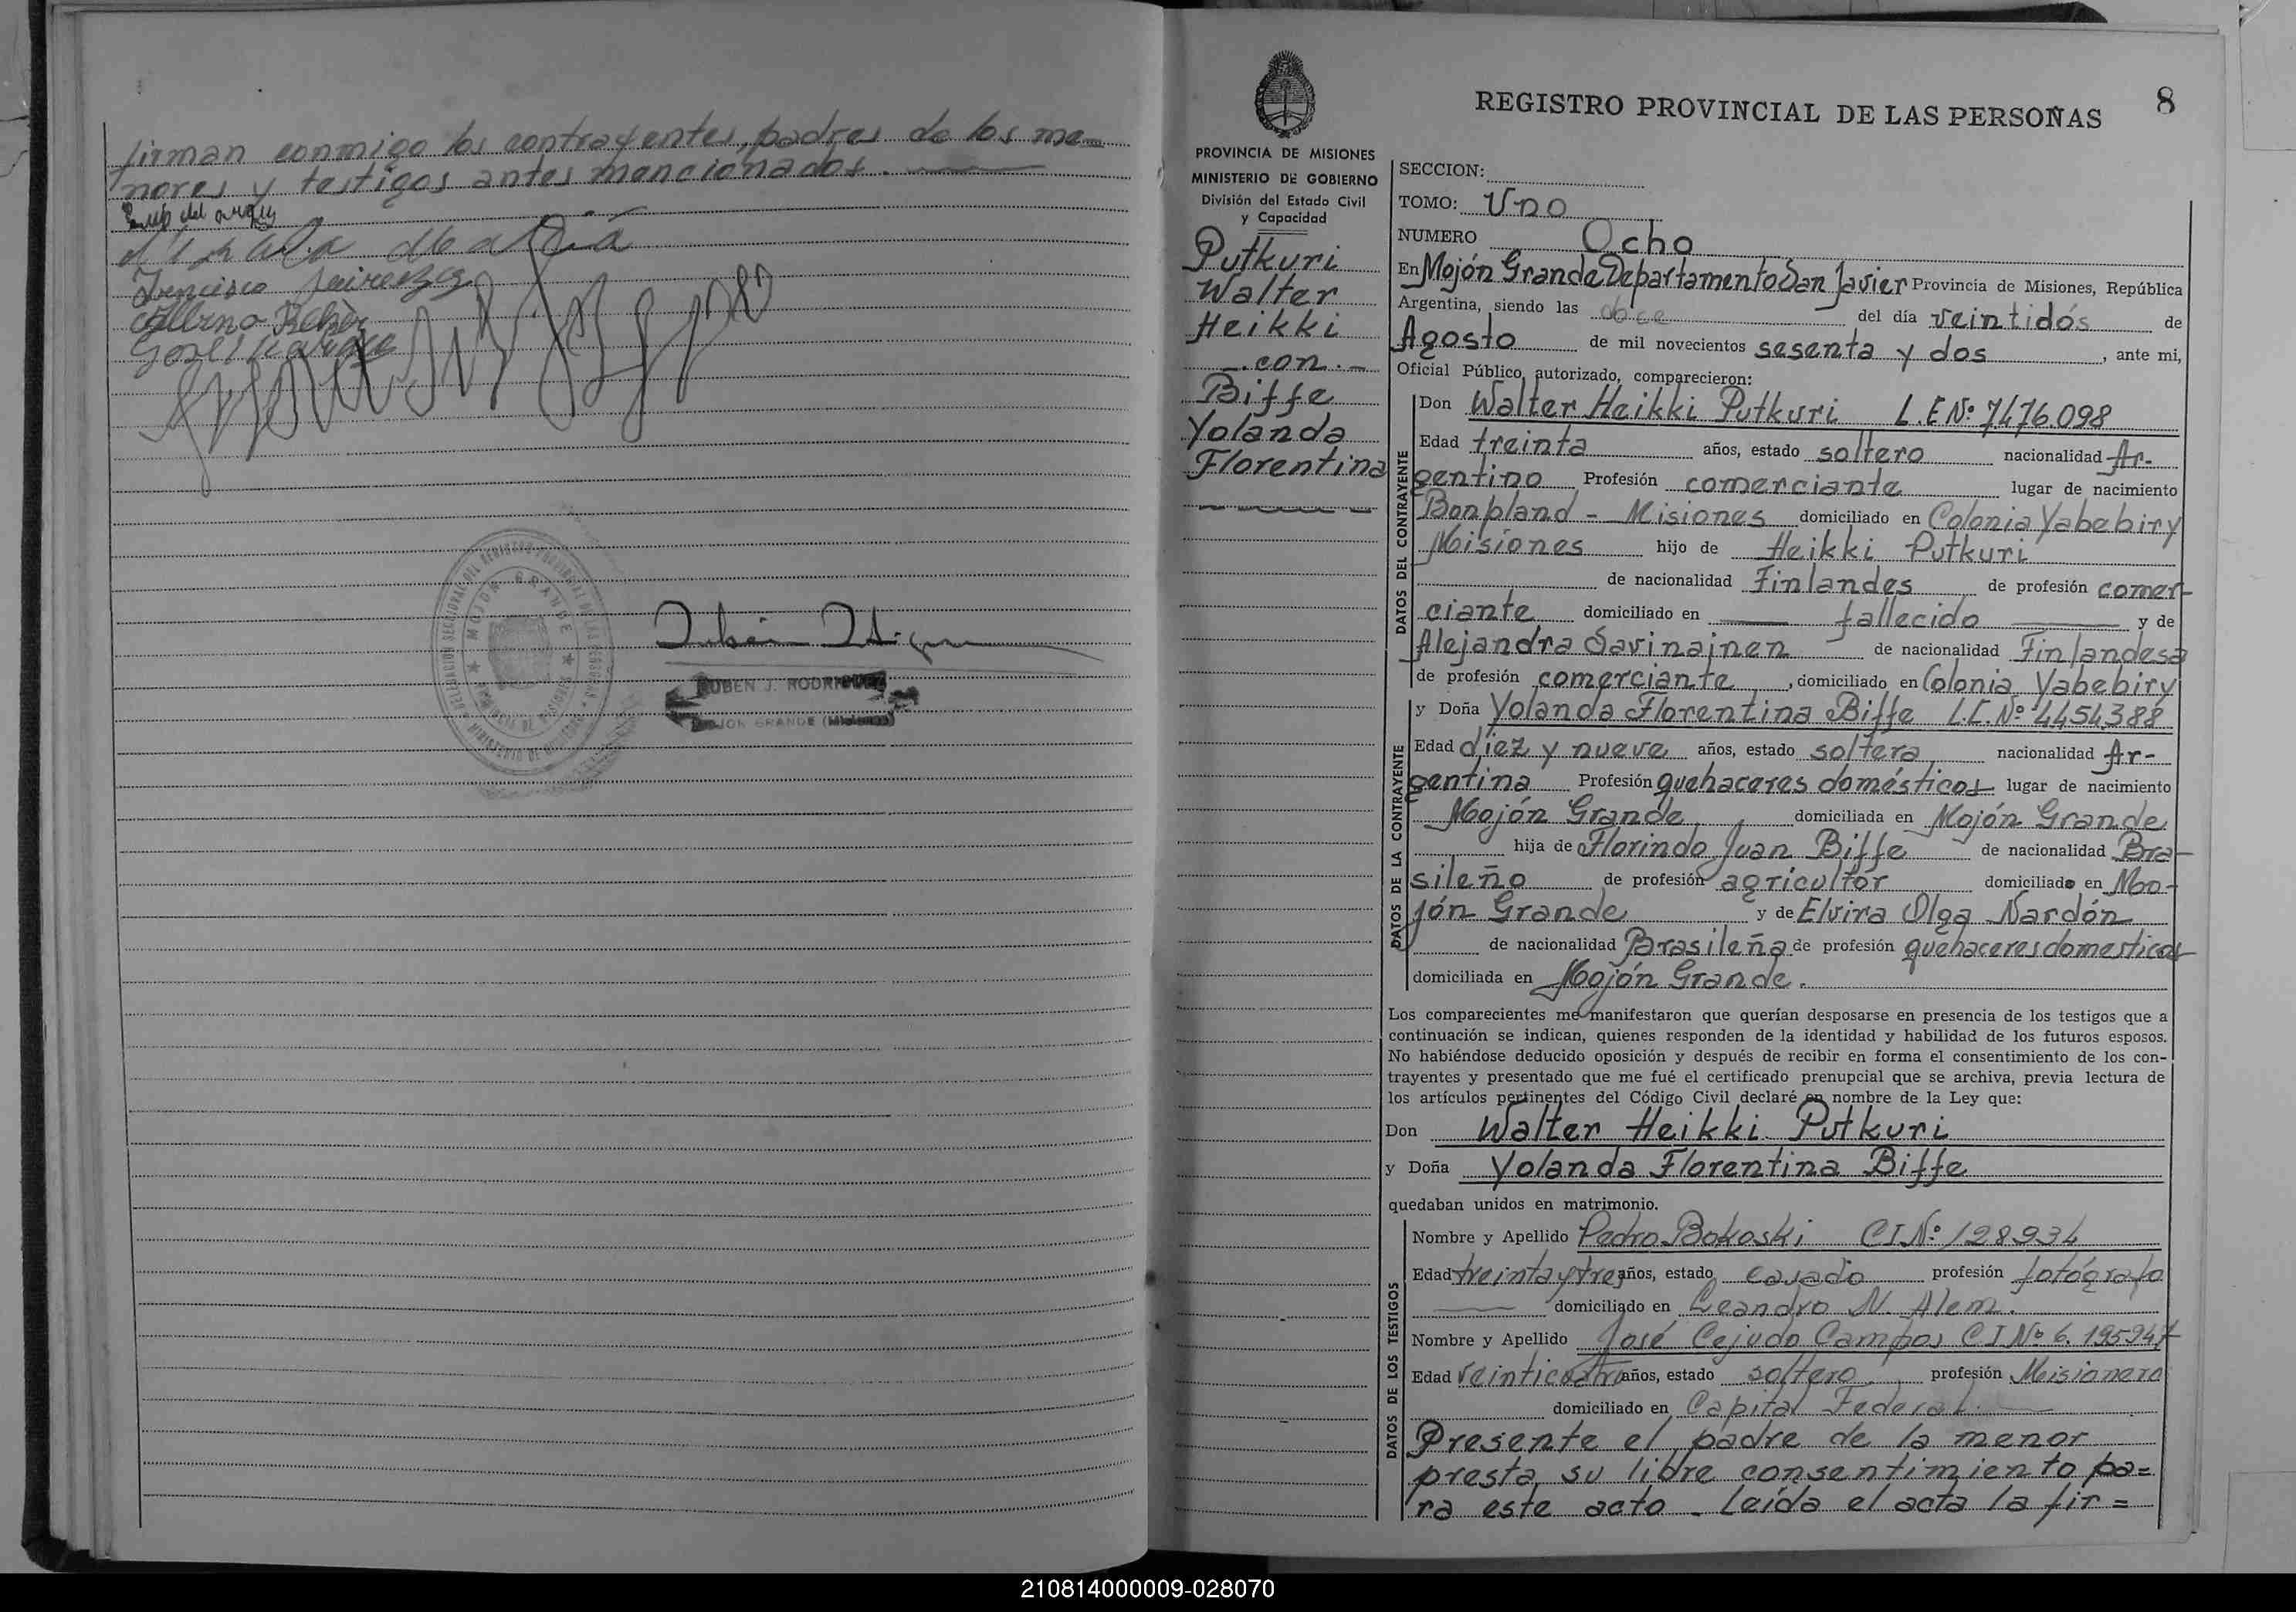 firman conmigo los contrayentes, padres de los me-
nores y testigos antes mencionados.
Francisco
RUBEN J. RODRIGUEZ
MOJON GRANDE (Misiones)
8
REGISTRO PROVINCIAL DE LAS PERSONAS
PROVINCIA DE MISIONES
MINISTERIO DE GOBIERNO
División del Estado Civil
y Capacidad
Putkuri
Walter
Heikki
.con.-
Biffe
Yolanda
Florentina
SECCION:
TOMO: Uno
NUMERO Ocho
En Mojón Grande Departamento San Javier Provincia de Misiones, República
Argentina, siendo las once del día veintidós de
Agosto de mil novecientos sesenta y dos, ante mi,
Oficial Público, autorizado, comparecieron:
DATOS DEL CONTRAYENTE
Don Walter Heikki Putkuri L.E Nº 7476.098
Edad treinta años, estado soltero nacionalidad Ar-
gentino Profesión comerciante lugar de nacimiento
Bonpland - Misiones domiciliado en Colonia Yabebiry
Misiones hijo de Heikki Putkuri
de nacionalidad Finlandes de profesión comer-
ciante domiciliado en fallecido y de
Alejandra Savinainen de nacionalidad Finlandesa
de profesión comerciante, domiciliado en Colonia Yabebiry
DATOS DE LA CONTRAYENTE
y Doña Yolanda Florentina Biffe L.C. Nº 4454388
Edad diez y nueve años, estado soltera nacionalidad Ar-
gentina Profesión quehaceres domésticos lugar de nacimiento
Mojón Grande domiciliada en Mojón Grande
hija de Florindo Juan Biffe de nacionalidad Bra-
sileño de profesión agricultor domiciliado en Mo-
jón Grande y de Elvira Olga Nardón
de nacionalidad Brasileña de profesión quehaceres domesticos
domiciliada en Mojón Grande.
Los comparecientes me manifestaron que querían desposarse en presencia de los testigos que a
continuación se indican, quienes responden de la identidad y habilidad de los futuros esposos.
No habiéndose deducido oposición y después de recibir en forma el consentimiento de los con-
trayentes y presentado que me fué el certificado prenupcial que se archiva, previa lectura de
los artículos pertinentes del Código Civil declaré en nombre de la Ley que:
Don Walter Heikki Putkuri
y Doña Yolanda Florentina Biffe
quedaban unidos en matrimonio.
DATOS DE LOS TESTIGOS
Nombre y Apellido Pedro Bokoski CI Nº 128934
Edad treinta y tres años, estado casado profesión fotógrafo
domiciliado en Leandro N. Alem.
Nombre y Apellido José Cejudo Campos C I Nº 6.195947
Edad Veinticuatro años, estado soltero profesión Misionero
domiciliado en Capital Federal.
Presente el padre de la menor
presta su libre consentimiento pa=
ra este acto. Leída el acta la fir=
210814000009-028070